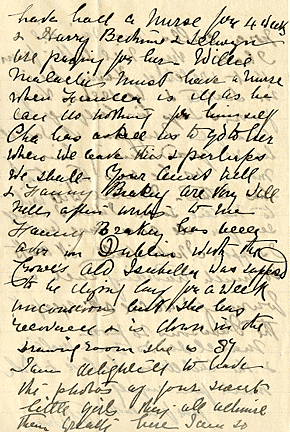 have had a Nurse for 4 weeks
& Harry Beckwise & Selwyn
are paying for her Willie
must have a Nurse
when is ill as he
can do nothing for himself
Cha has asked us to go to her
when we leave this & perhaps
we shall Your Aunt Nell
& Fanny Brakey are very well
Nell often writes to me
Fanny Brakey has been
over in Dublin with the
Croves old Isabella was supposed
to be dying lay for a week
unconscious but she has
recovered & is down in the
drawing room she is 87
I am delighted to have
the photos of your sweet
little girls they all admire
them greatly here I am so